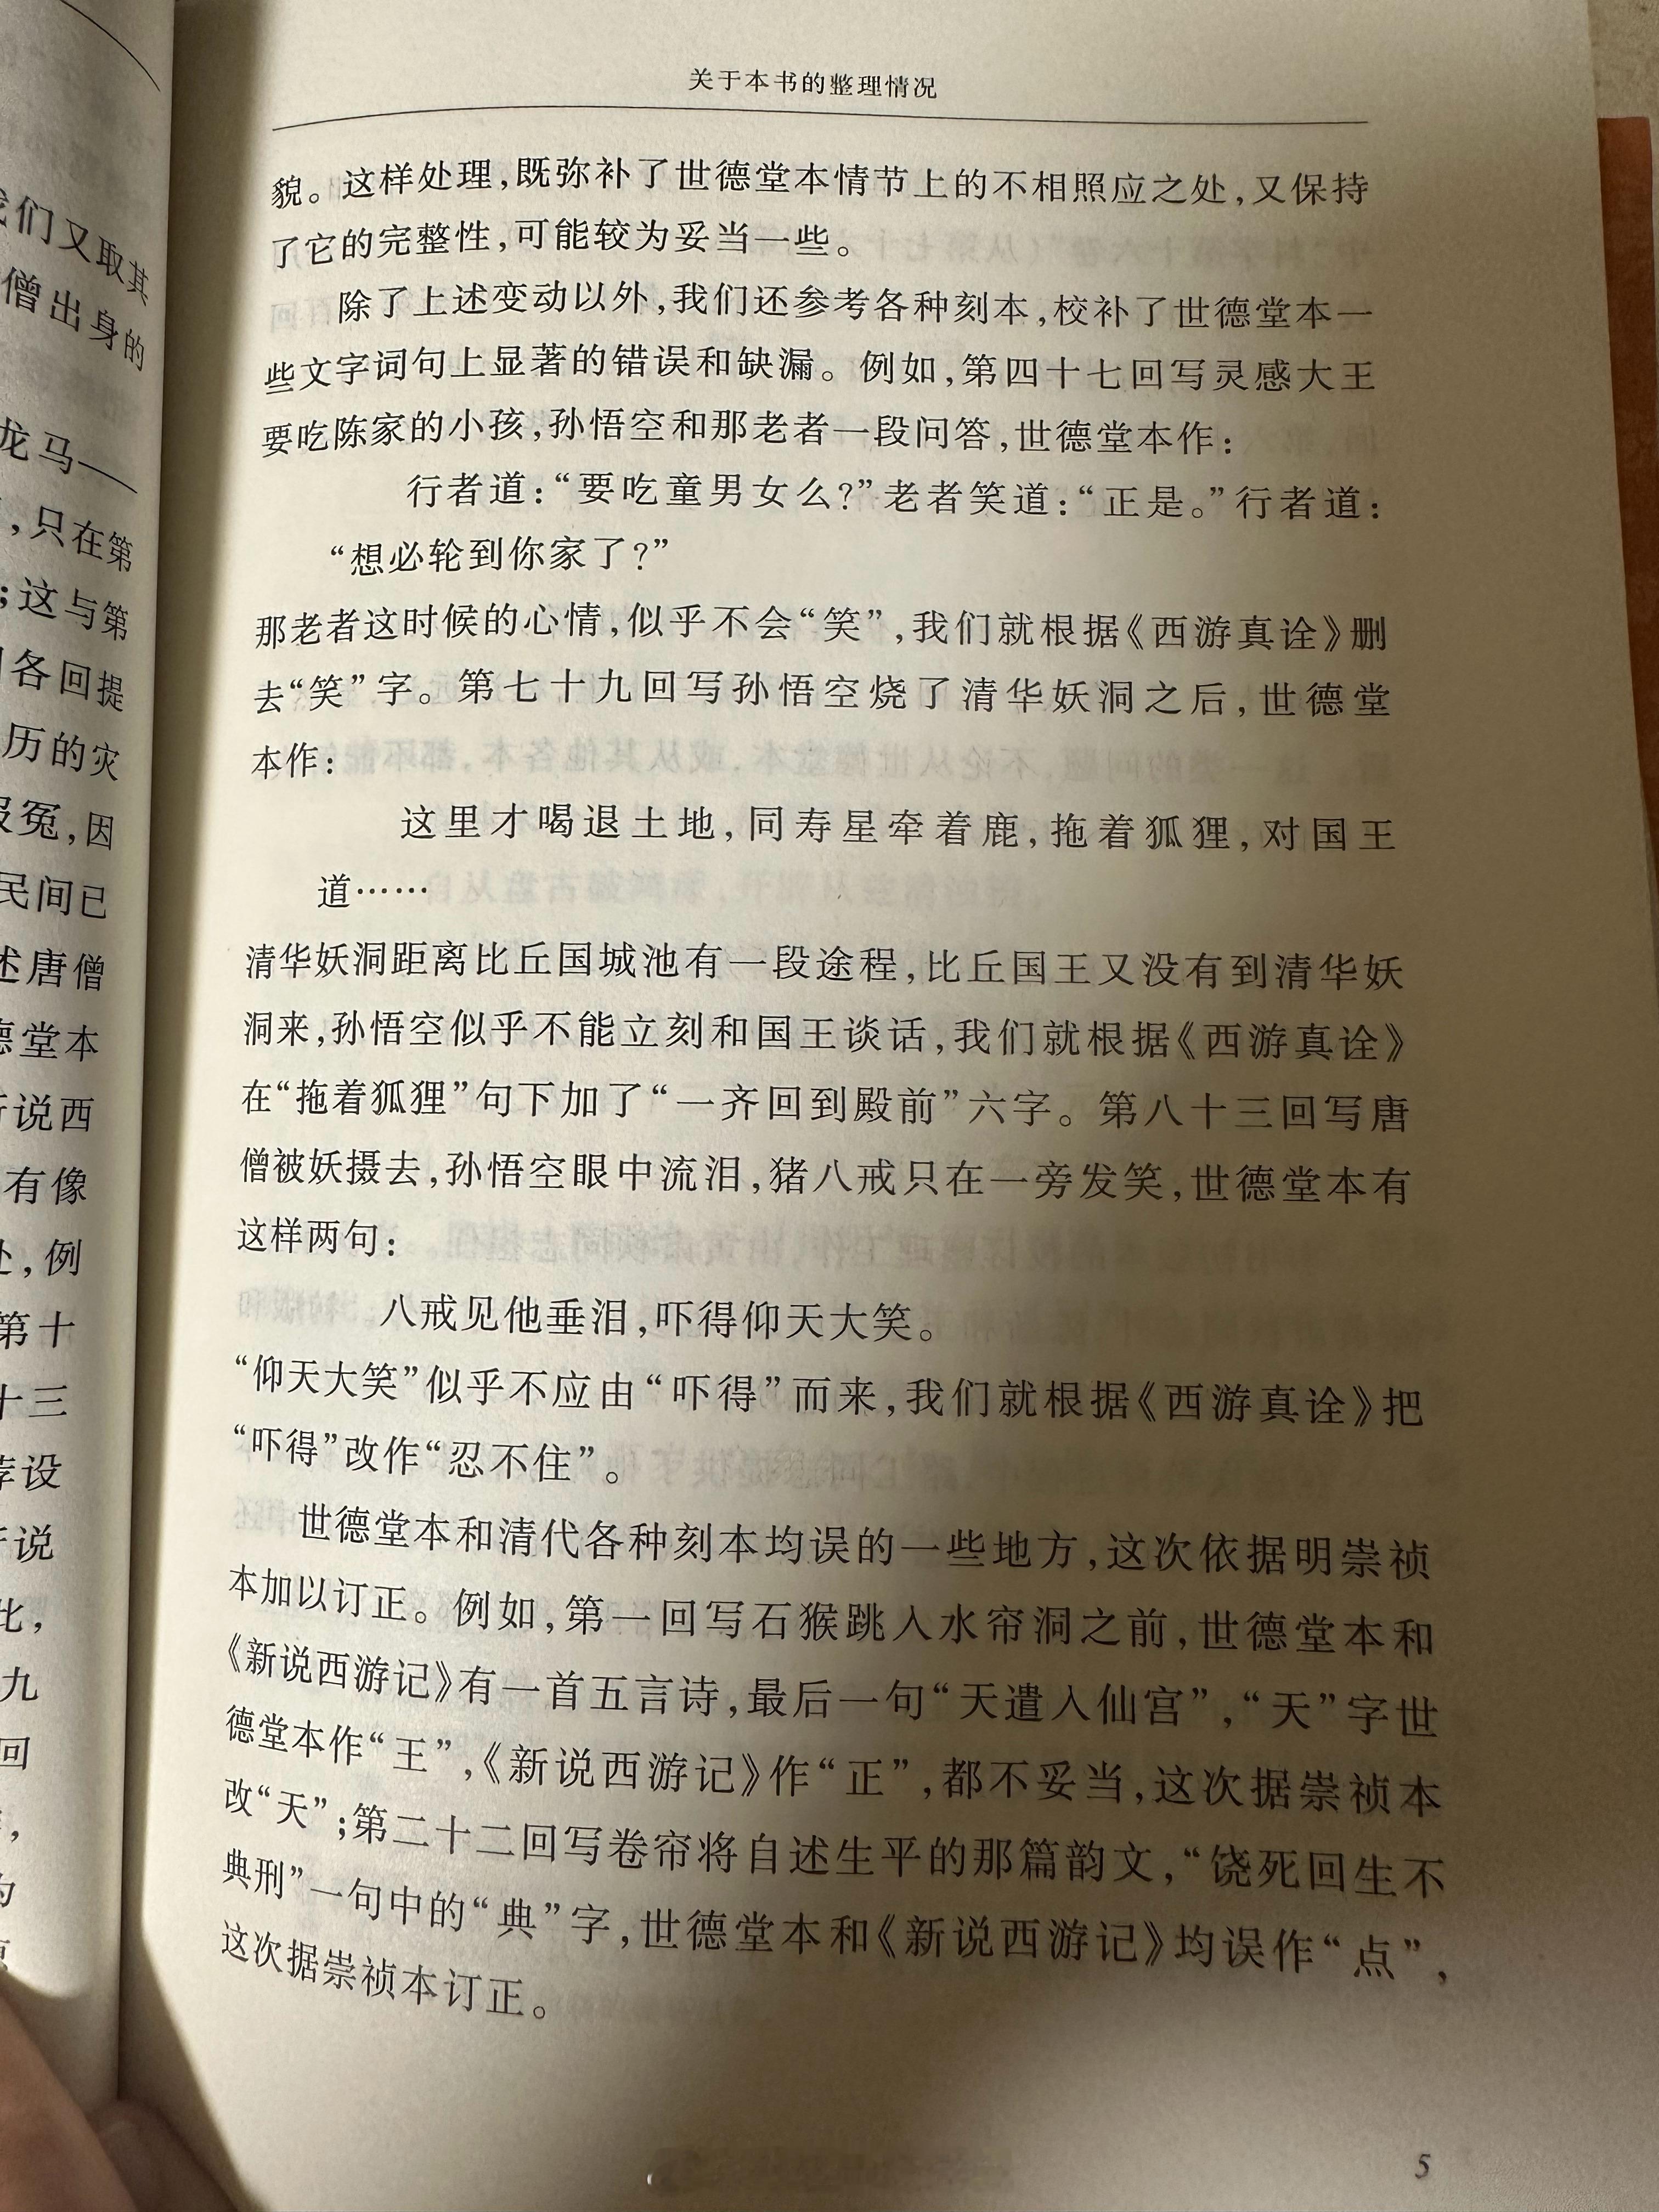 们又取其
僧出身的
龙马——
,只在第
;这与第
各回提
历的灾
冤,因
民间已
述唐僧
德堂本
说西
有像
,例
第十
十三
设
说
此,
九
回
关于本书的整理情况
貌。这样处理,既弥补了世德堂本情节上的不相照应之处,又保持
了它的完整性,可能较为妥当一些。
除了上述变动以外,我们还参考各种刻本,校补了世德堂本一
些文字词句上显著的错误和缺漏。例如,第四十七回写灵感大王
要吃陈家的小孩,孙悟空和那老者一段问答,世德堂本作:
行者道:“要吃童男女么?”老者笑道:“正是。”行者道:
“想必轮到你家了?”
那老者这时候的心情,似乎不会“笑”,我们就根据《西游真诠》删
去“笑”字。第七十九回写孙悟空烧了清华妖洞之后,世德堂
本作:
这里才喝退土地,同寿星牵着鹿,拖着狐狸,对国王
道……
清华妖洞距离比丘国城池有一段途程,比丘国王又没有到清华妖
洞来,孙悟空似乎不能立刻和国王谈话,我们就根据《西游真诠》
在“拖着狐狸”句下加了“一齐回到殿前”六字。第八十三回写唐
僧被妖摄去,孙悟空眼中流泪,猪八戒只在一旁发笑,世德堂本有
这样两句:
八戒见他垂泪,吓得仰天大笑。
“仰天大笑”似乎不应由“吓得”而来,我们就根据《西游真诠》把
“吓得”改作“忍不住”。
世德堂本和清代各种刻本均误的一些地方,这次依据明崇祯
本加以订正。例如,第一回写石猴跳入水帘洞之前,世德堂本和
《新说西游记》有一首五言诗,最后一句“天遣入仙宫”,“天”字世
德堂本作“王”,《新说西游记》作“正”,都不妥当,这次据崇祯本
改“天”;第二十二回写卷帘将自述生平的那篇韵文,“饶死回生不
典刑”一句中的“典”字,世德堂本和《新说西游记》均误作“点”,
这次据崇祯本订正。
5